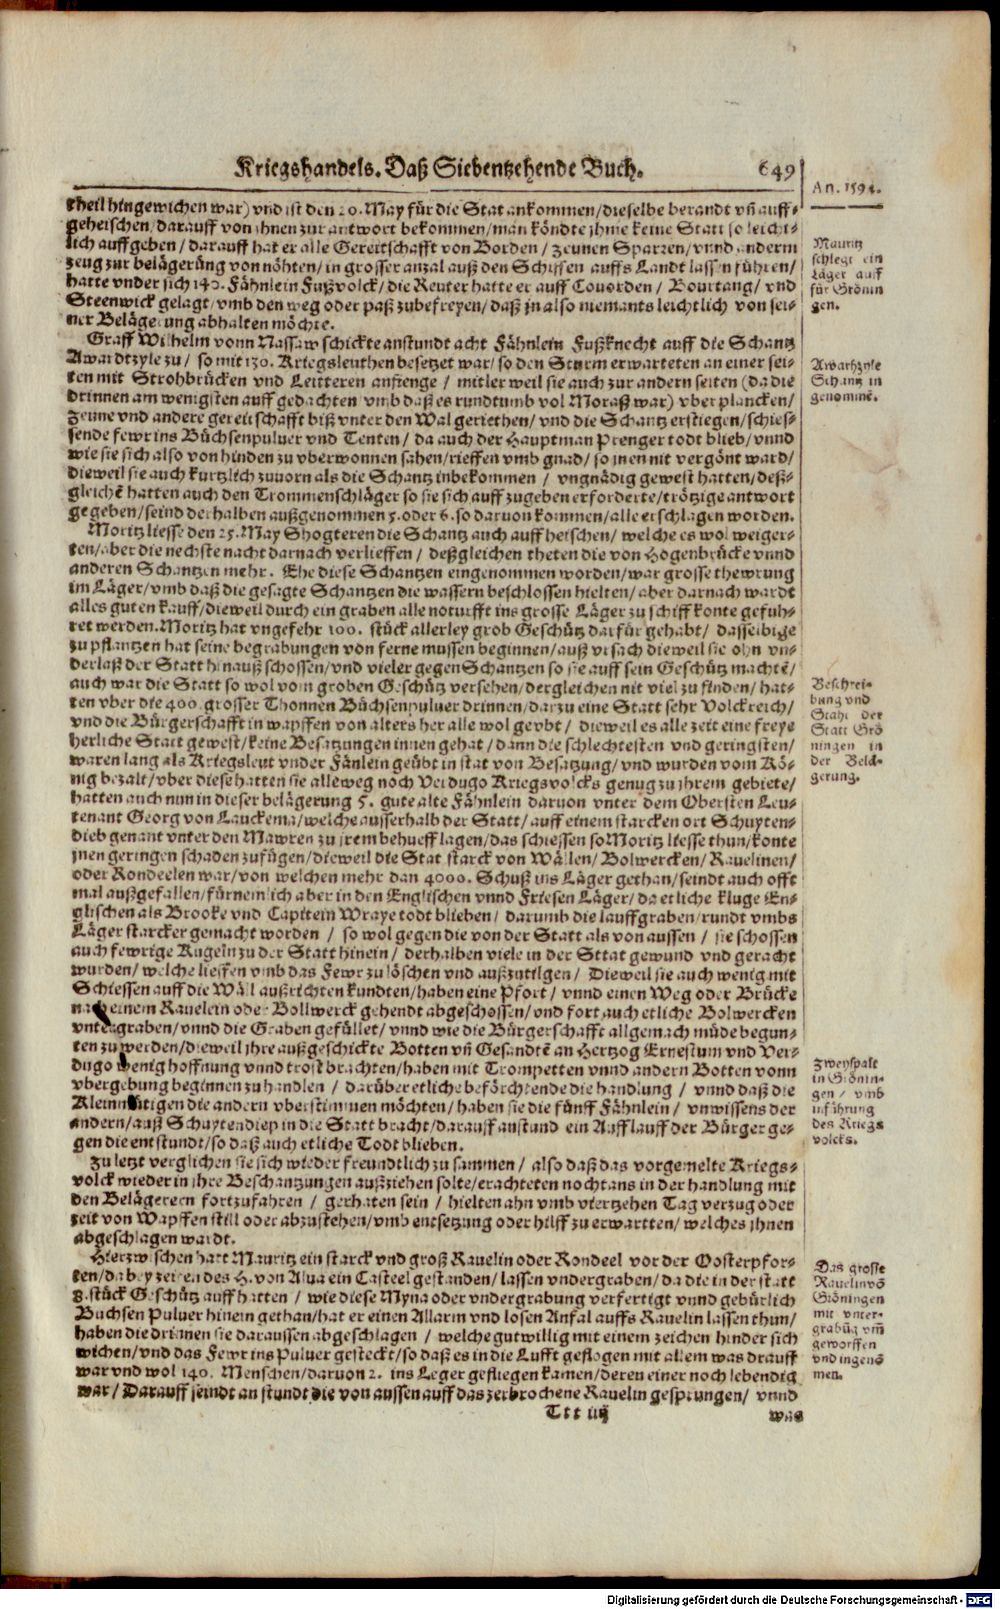 Kriegshandels. Daß Siebentzehende Buch. 649
An. 1594.
theil hingewichen war) vnd ist den 20. May für die Stat ankommen/dieselbe berandt vñ auff-
geheischen/darauff von ihnen zur antwort bekommen/man köndte ihme keine Statt so leicht-
lich auffgeben/darauff hat er alle Gereitschafft von Borden/zeunen Sparren/vnnd anderm
zeug zur belägerüng von nöhten/in grosser anzal auß den Schiffen auffs Landt lassen führen/
hatte vnder sich 140. Fähnlein Fußvolck/die Reuter hatte er auff Couorden/Bourtang/vnd
Steenwick gelagt/vmb den weg oder paß zubefreyen/daß jn also niemants leichtlich von sei-
ner Belägerung abhalten möchte.
Mauritz
schlegt ein
Läger auff
für Grönin
gen.
Graff Wilhelm vonn Nassaw schickte anstundt acht Fähnlein Fußknecht auff die Schantz
Awardtzyle zu/so mit 130. Kriegsleuthen besetzet war/so den Sturm erwarteten an einer sei-
ten mit Strohbrücken vnd Leitteren anfienge/mitler weil sie auch zur andern seiten (da die
drinnen am wenigsten auff gedachten vmb daß es rundtumb vol Moraß war) vber plancken/
Zeune vnd andere gereitschafft biß vnter den Wal geriethen/vnd die Schantz erstiegen/schies-
sende fewr ins Büchsenpuluer vnd Tenten/da auch der Hauptman Prenger todt blieb/vnnd
wie sie sich also von hinden zu vberwonnen sahen/rieffen vmb gnad/so jnen nit vergönt ward/
dieweil sie auch kurtzlich zuuorn als die Schantz inbekommen/vngnädig gewest hatten/deß-
gleichē hatten auch den Trommenschläger so sie sich auff zugeben erforderte/trötzige antwort
gegeben/seind derhalben außgenommen 5. oder 6. so daruon kommen/alle erschlagen worden.
Awarhzyle
Schantz in
genommē.
Moritz liesse den 25. May Shogteren die Schantz auch auff heischen/welche es wol weiger-
ten/aber die nechste nacht darnach verlieffen/deßgleichen theten die von Hogenbrücke vnnd
anderen Schantzen mehr. Ehe diese Schantzen eingenommen worden/war grosse thewrung
im Läger/vmb daß die gesagte Schantzen die wassern beschlossen hielten/aber darnach wardt
alles guten kauff/dieweil durch ein graben alle noturfft ins grosse Läger zu schiff konte gefuh-
ret werden. Moritz hat vngefehr 100. stück allerley grob Geschütz darfür gehabt/dasselbige
zu pflantzen hat seine begrabungen von ferne mussen beginnen/auß vrsach dieweil sie ohn vn-
derlaß der Statt hinauß schossen/vnd vieler gegen Schantzen so sie auff sein Geschütz machtē/
auch war die Statt so wol vom groben Geschütz versehen/dergleichen nit viel zu finden/hat-
ten vber die 400. grosser Thonnen Büchsenpuluer drinnen/darzu eine Statt sehr Volckreich/
vnd die Bürgerschafft in wapffen von alters her alle wol geybt/dieweil es alle zeit eine freye
herliche Statt gewest/keine Besatzungen innen gehat/dann die schlechtesten vnd geringsten/
waren lang als Kriegsleut vnder Fänlein geübt in stat von Besatzung/vnd wurden vom Kö-
nig bezalt/vber diese hatten sie alleweg noch Verdugo Kriegsvolcks genug zu jhrem gebiete/
hatten auch nun in dieser belägerung 5. gute alte Fähnlein daruon vnter dem Obersten Leu-
tenant Georg von Lauckema/welche ausserhalb der Statt/auff einem starcken ort Schuyten-
dieb genant vnter den Mawren zu jrem behueff lagen/das schiessen so Moritz liesse thun/konte
jnen geringen schaden zufügen/dieweil die Stat starck von Wällen/Bolwercken/Rauelinen/
oder Rondeelen war/von welchen mehr dan 4000. Schuß ins Läger gethan/seindt auch offt
mal außgefallen/fürnemlich aber in den Englischen vnnd Friesen Läger/da etliche kluge En-
glischen als Brooke vnd Capitein Wraye todt blieben/darumb die lauffgraben/rundt vmbs
Läger starcker gemacht worden/so wol gegen die von der Statt als von aussen/sie schossen
auch fewrige Kugeln zu der Statt hinein/derhalben viele in der Sttat gewund vnd geracht
wurden/welche lieffen vmb das Fewr zu löschen vnd außzutilgen/Dieweil sie auch wenig mit
Schiessen auff die Wäll außrichten kundten/haben eine Pfort/vnnd einen Weg oder Brücke
nach einem Rauelein oder Bollwerck gehendt abgeschossen/vnd fort auch etliche Bolwercken
vntergraben/vnnd die Graben gefüllet/vnnd wie die Bürgerschafft allgemach müde begun-
ten zu werden/dieweil ihre außgeschickte Botten vñ Gesandtē an Hertzog Ernestum vnd Ver-
dugo wenig hoffnung vnnd trost brachten/haben mit Trompetten vnnd andern Botten vonn
vbergebung beginnen zu handlen/darüber etliche beförchtende die handlung/vnnd daß die
Kleinmütigen die andern vberstimmen möchten/haben sie die fünff Fähnlein/vnwissens der
andern/auß Schuytendiep in die Statt bracht/darauff anstund ein Aufflauff der Bürger ge-
gen die entstundt/so daß auch etliche Todt blieben.
Beschrei-
bung vnd
Staht der
Statt Grö
ningen in
der Belä-
gerung.
Zweyspalt
in Grönin-
gen/vmb
inführung
des Kriegs
volcks.
Zu letzt verglichen sie sich wieder freundtlich zu sammen/also daß das vorgemelte Kriegs-
volck wieder in ihre Beschantzungen außziehen solte/erachteten nochtans in der handlung mit
den Belägerern fortzufahren/gerhaten sein/hielten ahn vmb viertzehen Tag verzug oder
zeit von Wapffen still oder abzustehen/vmb entsetzung oder hilff zu erwartten/welches ihnen
abgeschlagen wardt.
Hierzwischen hatt Mauritz ein starck vnd groß Rauelin oder Rondeel vor der Oosterpfor-
ten/da bey zeiten des H. von Alua ein Casteel gestanden/lassen vndergraben/da die in der statt
8. stück Geschütz auff hatten/wie diese Myna oder vndergrabung verfertigt vnnd gebürlich
Buchsen Puluer hinein gethan/hat er einen Allarm vnd losen Anfal auffs Rauelin lassen thun/
haben die drinnen sie daraussen abgeschlagen/welche gutwillig mit einem zeichen hinder sich
wichen/vnd das Fewr ins Puluer gesteckt/so daß es in die Lufft geflogen mit allem was drauff
war vnd wol 140. Menschen/daruon 2. ins Leger gefliegen kamen/deren einer noch lebendig
war/Darauff seindt an stundt die von aussen auff das zerbrochene Rauelin gesprungen/vnnd
Das grosse
Rauelin vō
Gröningen
mit vnter-
grabūg vm̄
geworffen
vnd ingenō
men.
Ttt iiij
was
Digitalisierung gefördert durch die Deutsche Forschungsgemeinschaft - DFG